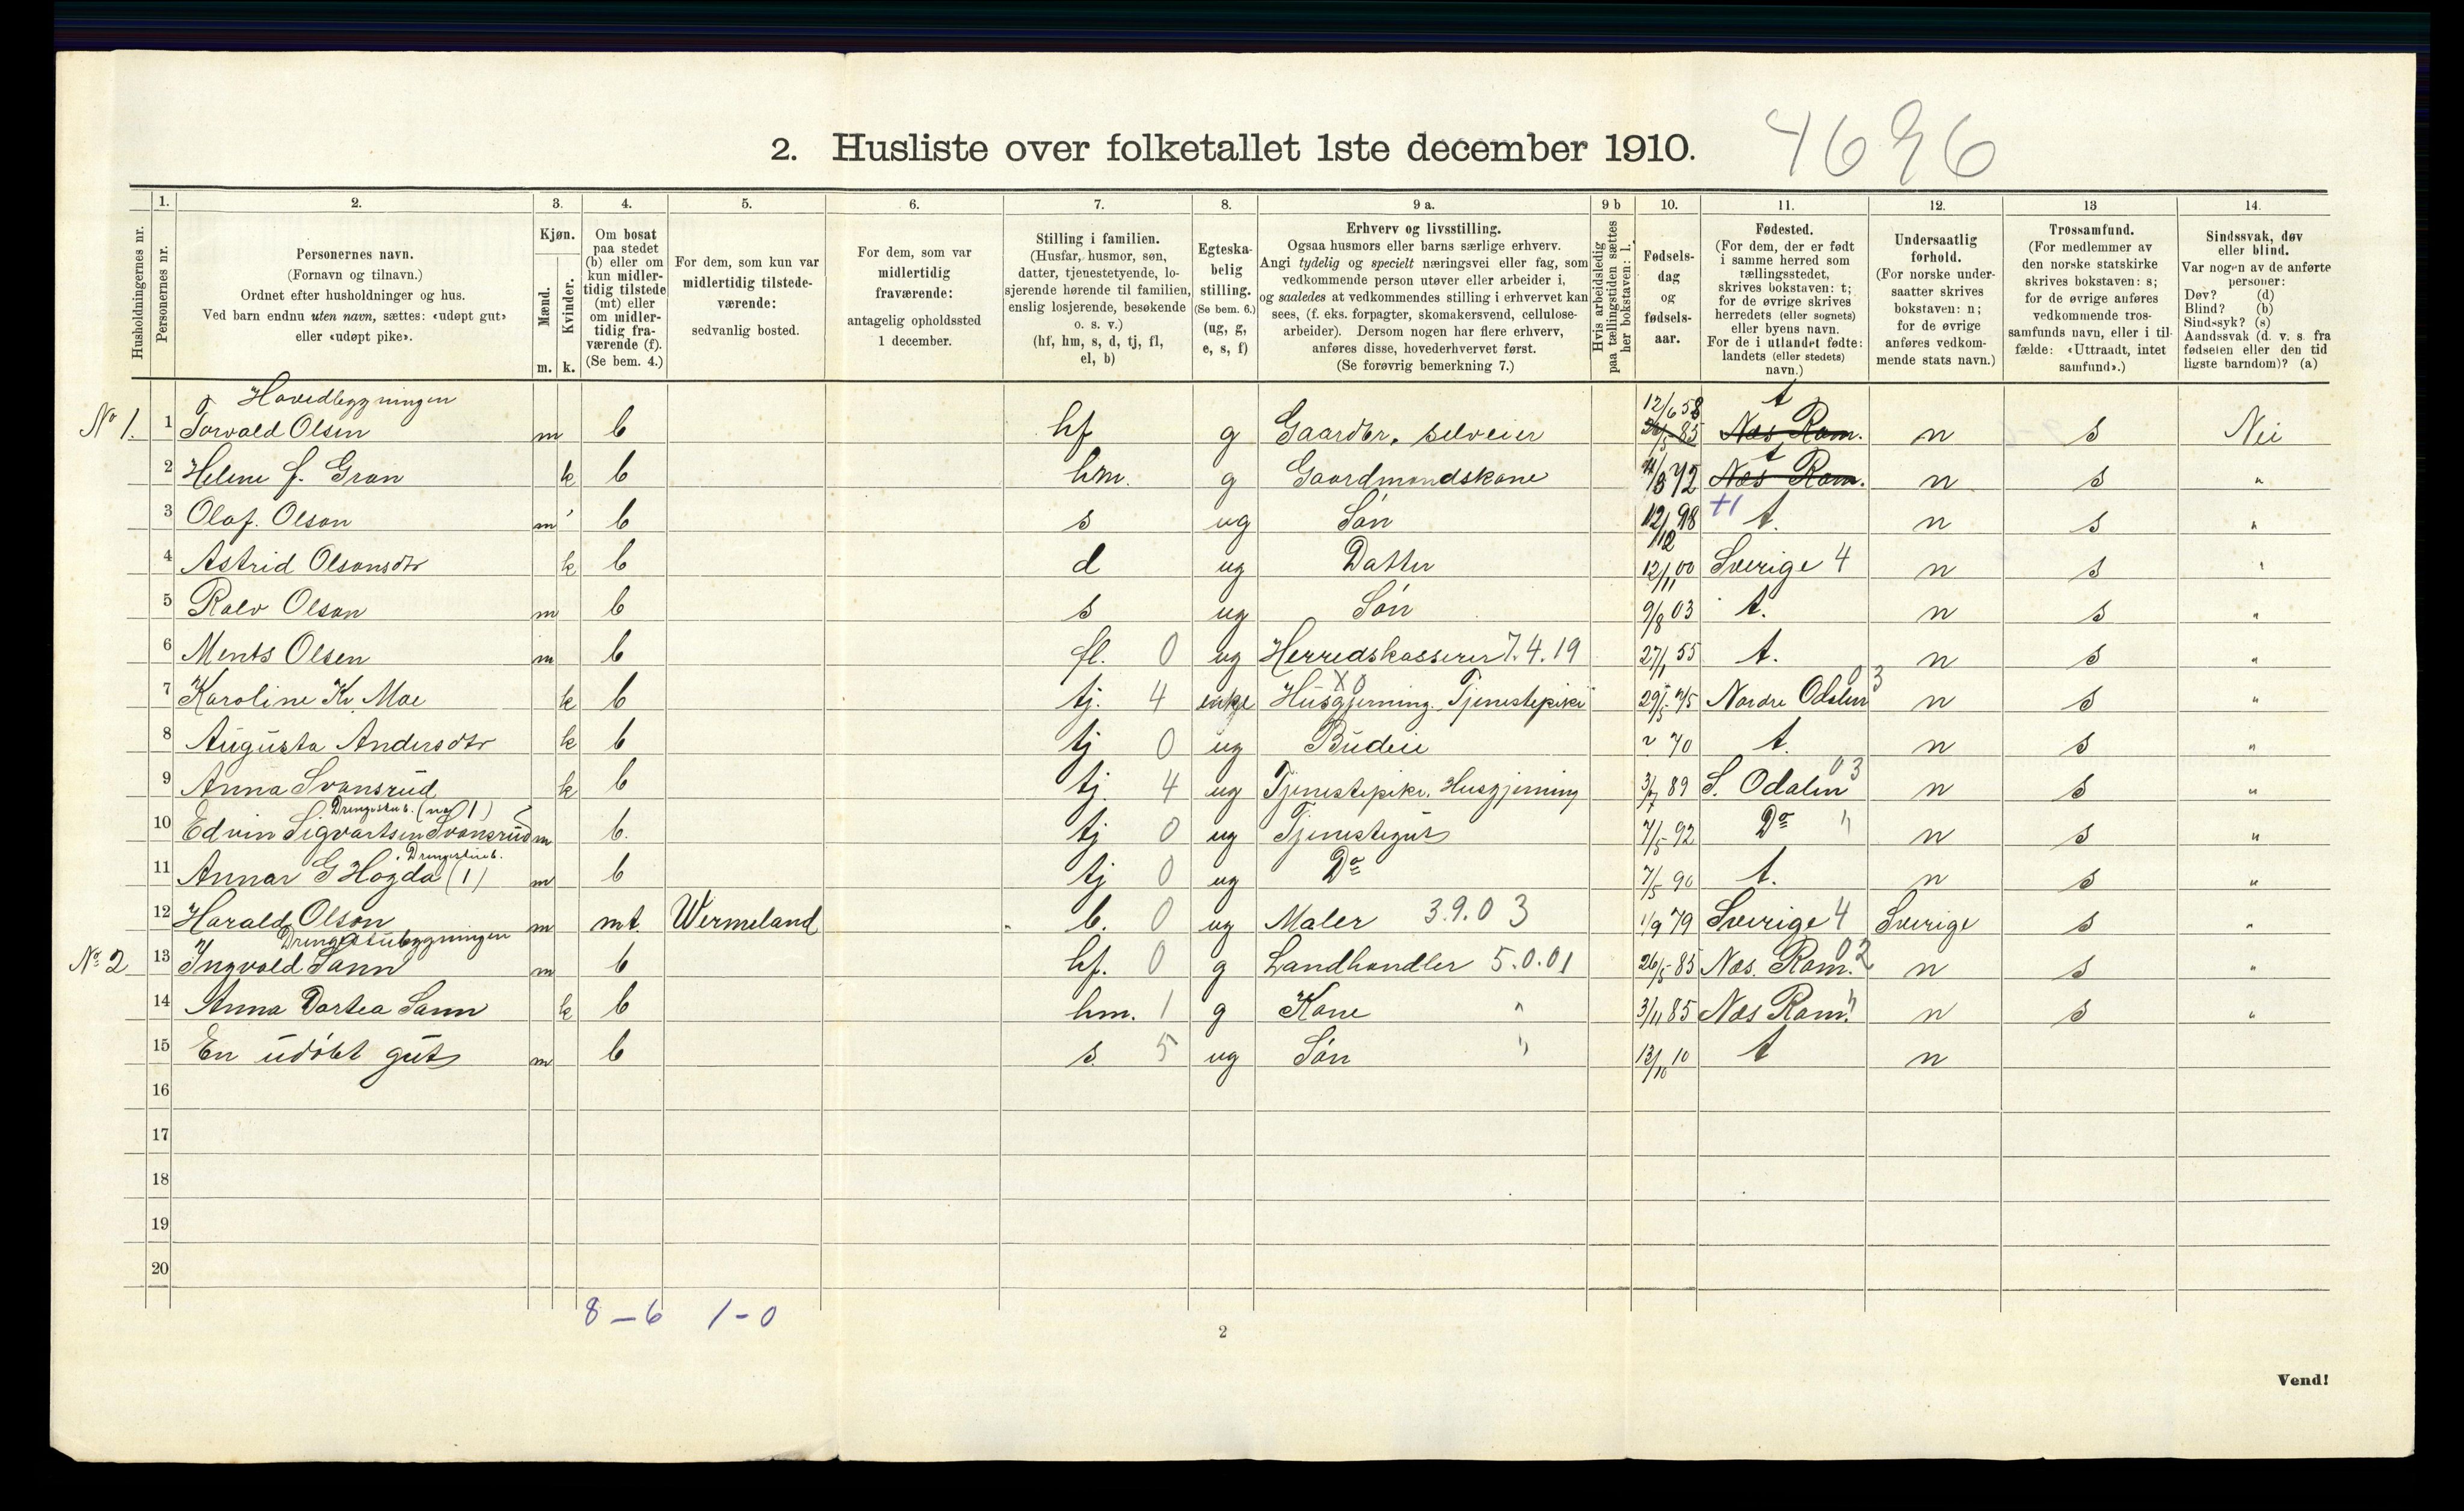 2. Husliste over folketallet 1ste december 1910. 4696
Husholdningernes nr.
1. Personernes nr.
2. Personernes navn. (Fornavn og tilnavn.) Ordnet efter husholdninger og hus. Ved barn endnu uten navn, sættes: «udøpt gut» eller «udøpt pike».
3. Kjøn. Mænd. Kvinder. m. k.
4. Om bosat paa stedet (b) eller om kun midlertidig tilstede (mt) eller om midlertidig fraværende (f). (Se bem. 4.)
5. For dem, som kun var midlertidig tilstedeværende: sedvanlig bosted.
6. For dem, som var midlertidig fraværende: antagelig opholdssted 1 december.
7. Stilling i familien. (Husfar, husmor, søn, datter, tjenestetyende, losjerende hørende til familien, enslig losjerende, besøkende o. s. v.) (hf, hm, s, d, tj, fl, el, b)
8. Egteskabelig stilling. (Se bem. 6.) (ug, g, e, s, f)
9 a. Erhverv og livsstilling. Ogsaa husmors eller barns særlige erhverv. Angi tydelig og specielt næringsvei eller fag, som vedkommende person utøver eller arbeider i, og saaledes at vedkommendes stilling i erhvervet kan sees, (f. eks. forpagter, skomakersvend, cellulosearbeider). Dersom nogen har flere erhverv, anføres disse, hovederhvervet først. (Se forøvrig bemerkning 7.)
9 b Hvis arbeidsledig paa tællingstiden sættes her bokstaven: l.
10. Fødselsdag og fødselsaar.
11. Fødested. (For dem, der er født i samme herred som tællingsstedet, skrives bokstaven: t; for de øvrige skrives herredets (eller sognets) eller byens navn. For de i utlandet fødte: landets (eller stedets) navn.)
12. Undersaatlig forhold. (For norske undersaatter skrives bokstaven: n; for de øvrige anføres vedkommende stats navn.)
13 Trossamfund. (For medlemmer av den norske statskirke skrives bokstaven: s; for de øvrige anføres vedkommende trossamfunds navn, eller i tilfælde: «Uttraadt, intet samfund».)
14. Sindssvak, døv eller blind. Var nogen av de anførte personer: Døv? (d) Blind? (b) Sindssyk? (s) Aandssvak (d. v. s. fra fødselen eller den tidligste barndom)? (a)
Hovedbygningen
No 1. 1 Torvald Olsen m b hf g Gaardbr. selveier 12/6 58 26/5 85 t Næs Rom. n s Nei
2 Helene f. Gran k b hm. g Gaardmandskone 72 t Næs Rom. n s "
3 Olaf. Olson m b s ug Søn 12/12 98 t. n s "
4 Astrid Olsonsdtr k b d ug Datter 12/11 00 Sverige 4 n s "
5 Rolv Olson m b s ug Søn 9/8 03 t. n s "
6 Ments Olsen m b fl. 0 ug Herredskasserer 7.4.19 27/1 55 t. n s "
7 Karoline K. Moe k b tj. 4 enke Husgjerning. Tjenestepike X0 Nordre Odalen 03 n s "
8 Augusta Andersdtr k b tj 0 ug Budeie 70 t. n s "
9 Anna Svansrud k b tj. 4 ug Tjenestepike. Husgjerning 3/7 89 S. Odalen 03 n s "
10 Edvin Sigvartsen Svansrud m b. tj 0 ug Tjenestegut 7/5 92 Do " n s "
11 Annar G Hogda (1) m b tj 0 ug Do 7/5 90 t. n s "
12 Harald Olson m mt. Wermeland b. 0 ug Maler 3.9.03 1/9 79 Sverige 4 Sverige s "
Drengestubygningen
No 2 13 Ingvold Sann m b hf. 0 g Landhandler 5.0.01 26/5 85 Næs. Rom. 02 n s "
14 Anna Dortea Sann k b hm. 1 g Kone " 3/11 85 Næs Rom. " n s "
15 En udøbt gut m b s. 5 ug Søn " 13/10 10 t n
16
17
18
19
20
8 – 6 1 - 0
2
Vend!